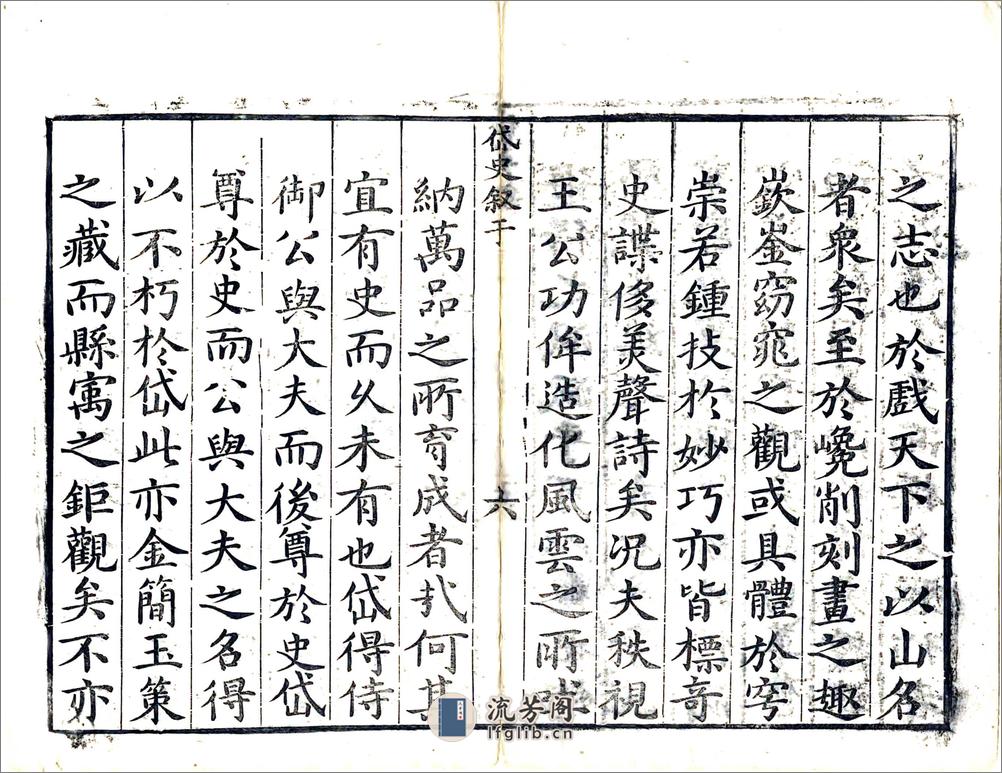 之志也於戲天下之以山名
者衆矣至於巉削刻畫之趣
嶔崟窈窕之觀或具體於穹
崇若鍾技於妙巧亦皆標奇
史諜侈美聲詩矣况夫秩視
王公功侔造化風雲之所
岱史叙二
六
納萬品之所育成者哉何其
宜有史而久未有也岱得侍
御公與大夫而後尊於史岱
尊於史而公與大夫之名得
以不朽於岱此亦金簡玉策
之藏而縣寓之鉅觀矣不亦
流芳阁
lfglib.cn